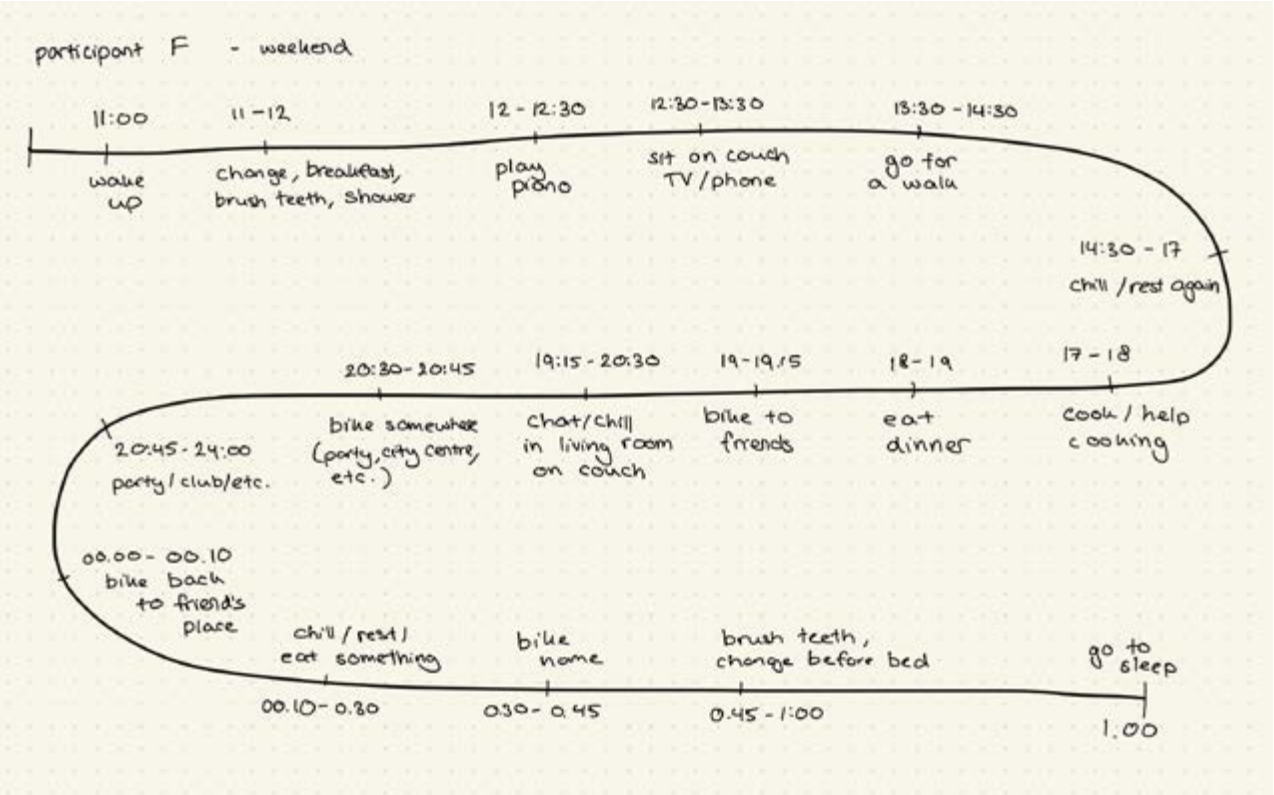 participant F - weekend
11:00
wake
up
11-12
change, breakfast,
brush teeth, shower
12-12:30
play
piano
12:30-13:30
sit on couch
TV/phone
13:30-14:30
go for
a walk
14:30-17
chill/rest again
17-18
cook/help
cooking
18-19
eat
dinner
19-19.15
bike to
friends
19:15-20:30
chat/chill
in living room
on couch
20:30-20:45
bike somewhere
(party, city centre,
etc.)
20:45-24:00
party/club/etc.
00.00-00.10
bike back
to friend's
place
chill/rest/
eat something
00.10-0.30
bike
home
0.30-0.45
brush teeth,
change before bed
0.45-1:00
go to
sleep
1.00